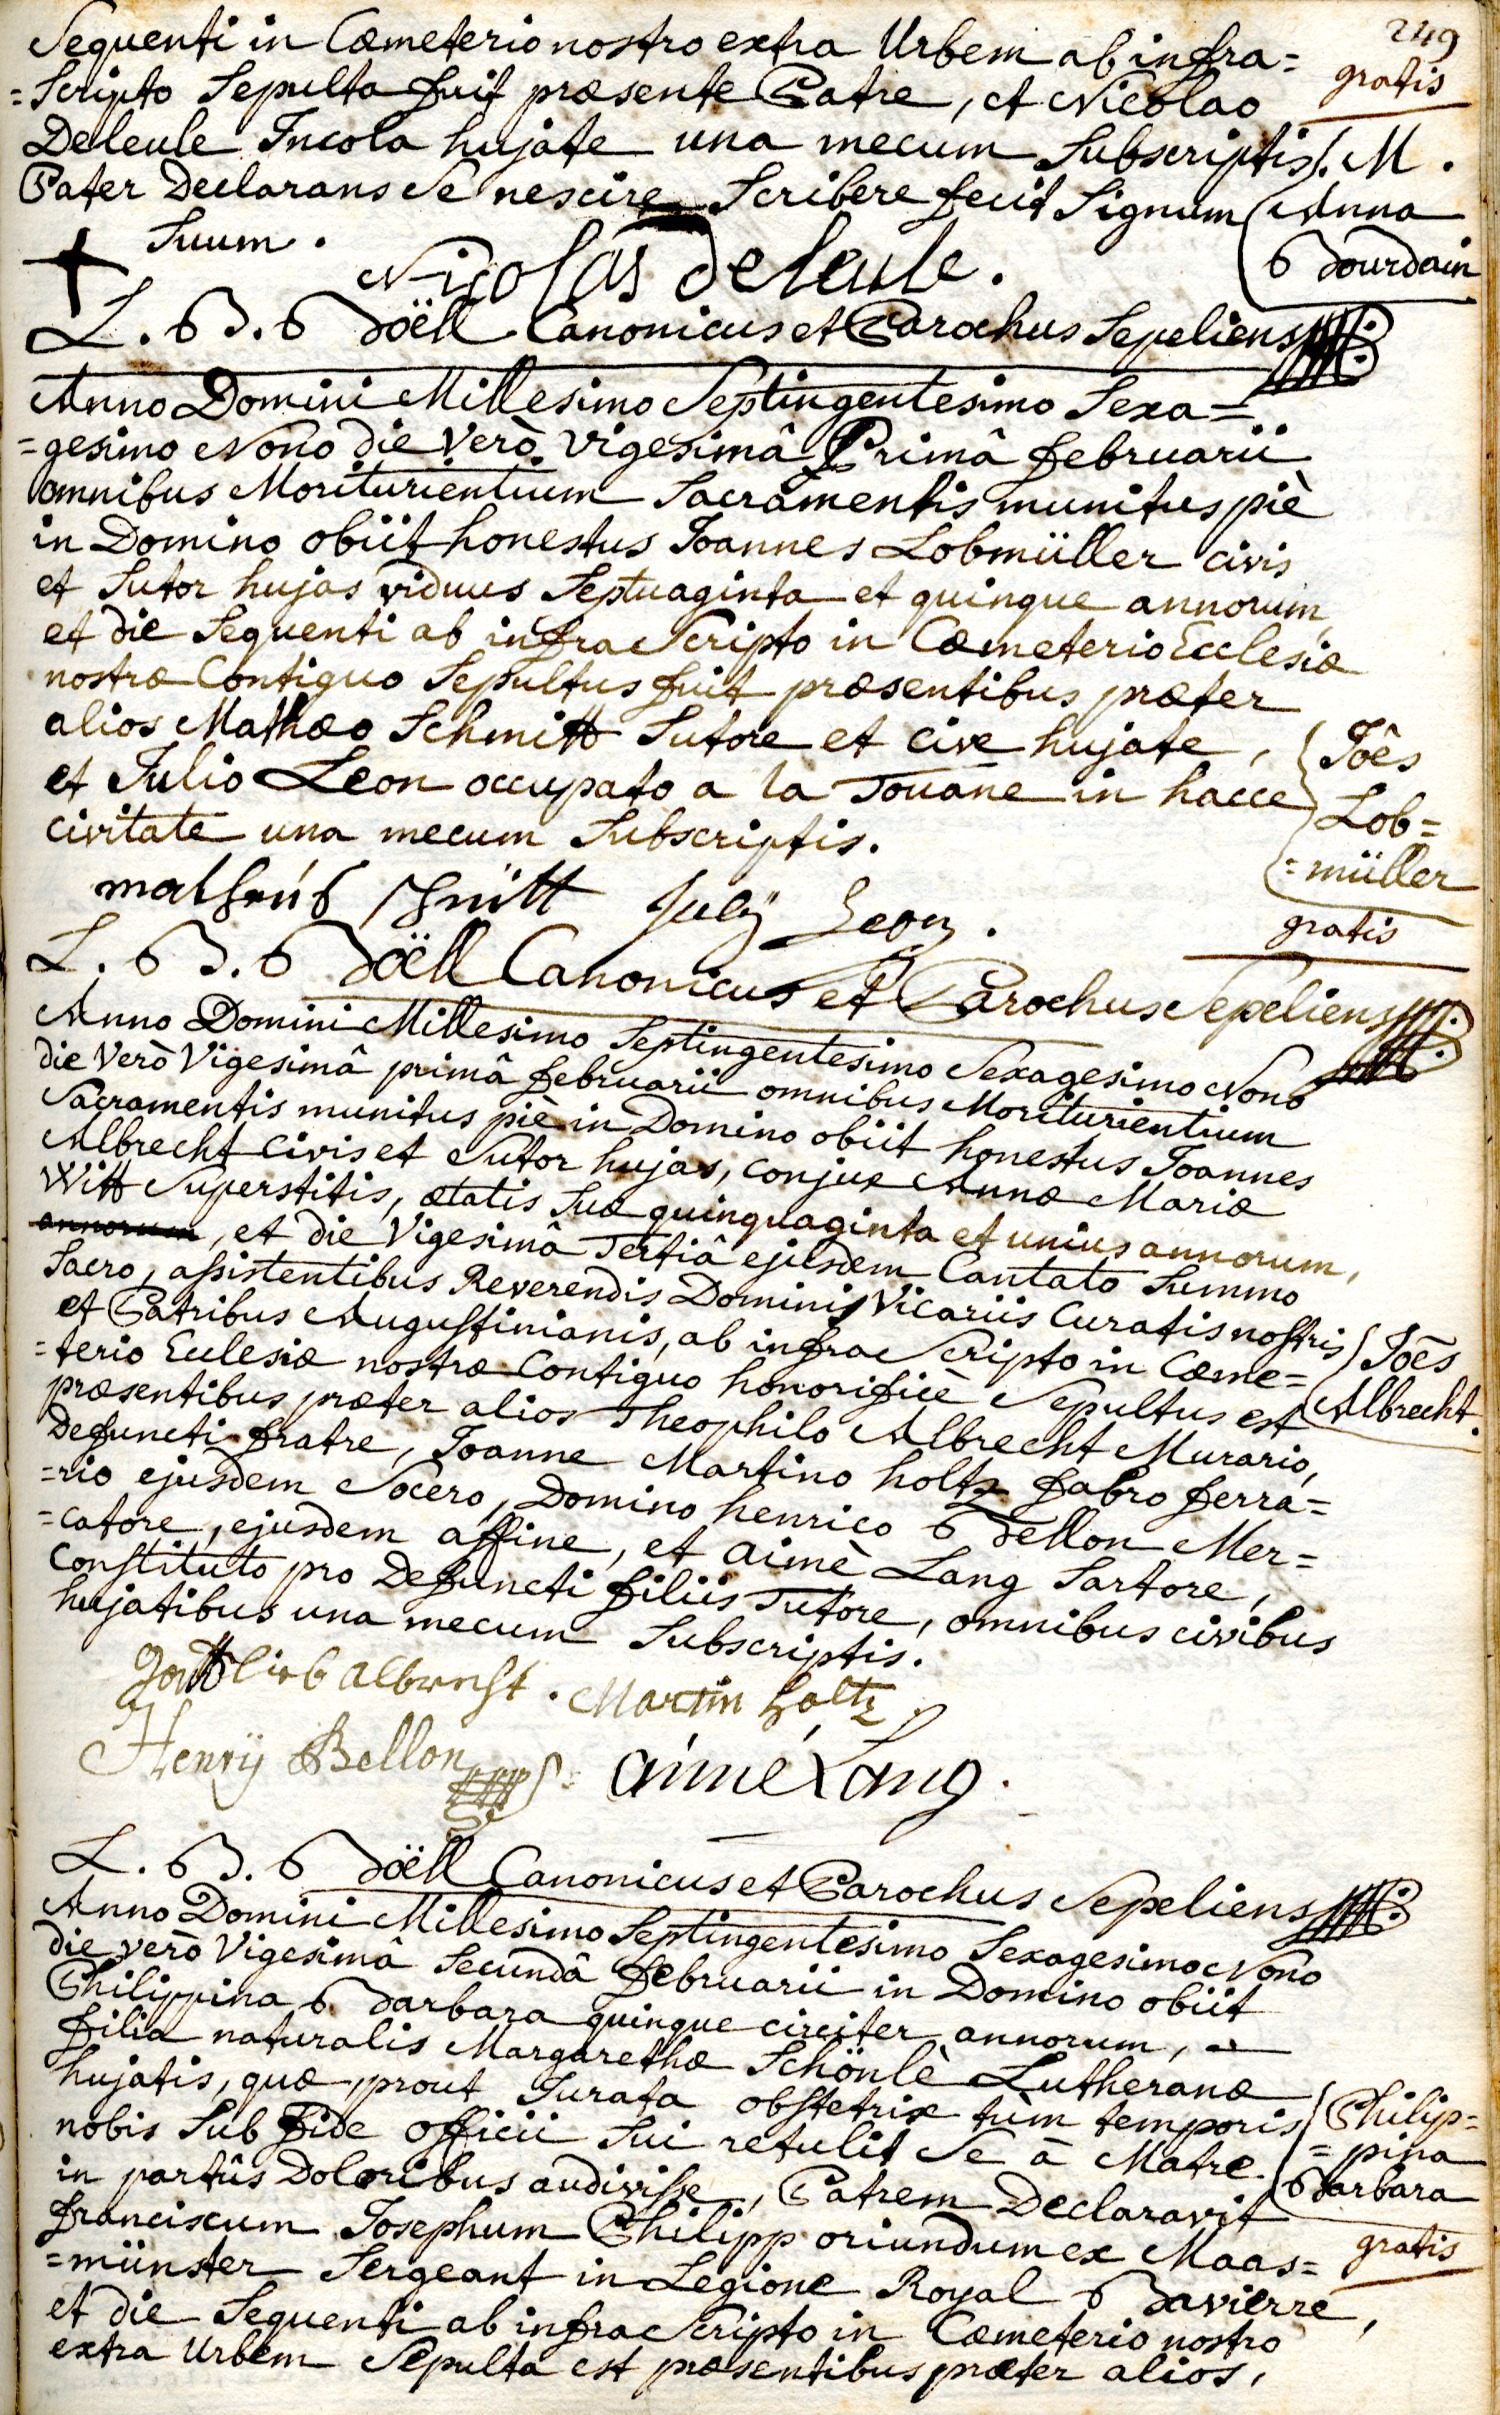 249
Sequenti in Cœmeterio nostro extra Urbem ab infra=
=Scripto Sepulta fuit præsente Patre, et Nicolao
gratis
Deleule Incola hujate una mecum Subscriptis.
Pater Declarans Se nescire Scribere fecit Signum
Suum.
M.
Anna
Bourdain
Nicolas deleule.
L. B. Böell Canonicus et Parochus Sepeliens
Anno Domini Millesimo Septingentesimo Sexa=
=gesimo Nono die Verò Vigesimâ Primâ februarii
omnibus Moriturientium Sacramentis munitus piè
in Domino obiit honestus Joannes Lobmüller civis
et Sutor hujas viduus Septuaginta et quinque annorum,
et die Sequenti ab infra Scripto in Cœmeterio Ecclesiæ
nostræ Contiguo Sepultus fuit præsentibus præter
alios Mathæo Schmitt Sutore et cive hujate,
et Julio Leon occupato a la Douane in hacce
civitate una mecum Subscriptis.
Jôes
Lob=
=müller
gratis
matheus Schmitt July Leon.
L. B. Böell Canonicus et Parochus Sepeliens
Anno Domini Millesimo Septingentesimo Sexagesimo Nono
die Verò Vigesimâ primâ februarii omnibus Moriturientium
Sacramentis munitus piè in Domino obiit honestus Joannes
Albrecht civis et Sutor hujas, conjux Annæ Mariæ
Witt Superstitis, ætatis Suæ quinquaginta et unius annorum,
annorum, et die Vigesimâ Tertiâ ejusdem Cantato Summo
Sacro, assistentibus Reverendis Dominis Vicariis Curatis nostris
et Patribus Augustinianis, ab infra Scripto in Cœme=
=terio Ecclesiæ nostræ Contiguo honorificè Sepultus est
præsentibus præter alios Theophilo Albrecht Murario,
Defuncti fratre, Joanne Martino holtz fabro ferra=
=rio ejusdem Socero, Domino henrico Bellon Mer=
=catore, ejusdem affine, et Aimè Lang Sartore,
Constituto pro Defuncti filiis Tutore, omnibus civibus
hujatibus una mecum Subscriptis.
Jôes
Albrecht.
Gottlieb albrecht. Martin holtz
Henrÿ Bellon aimé Lang.
L. B. Böell Canonicus et Parochus Sepeliens
Anno Domini Millesimo Septingentesimo Sexagesimo Nono
die verò Vigesimâ Secundâ februarii in Domino obiit
Philippina Barbara quinque circiter annorum,
filia naturalis Margarethæ Schönlè Lutheranæ
hujatis, quæ, prout Jurata obstetrix tùm temporis
nobis Sub fide officii Sui retulit Se à Matre
in partûs Doloribus audivisse, Patrem Declaravit
franciscum Josephum Philipp oriundum ex Maas=
=münster Sergeant in Legione Royal Bavierre,
et die Sequenti ab infra Scripto in Cœmeterio nostro
extra Urbem Sepulta est præsentibus præter alios,
Philip=
=pina
Barbara
gratis